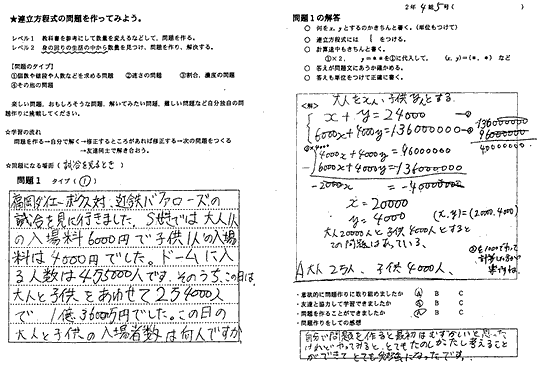 ★連立方程式の問題を作ってみよう。
レベル1 教科書を参考にして数量を変えるなどして、問題を作る。
レベル2 身の回りの生活の中から数量を見つけ、問題を作り、解決する。
[問題のタイプ]
①個数や値段や人数などを求める問題 ②速さの問題 ③割合、濃度の問題
④その他の問題
楽しい問題、おもしろそうな問題、解いてみたい問題、難しい問題など自分独自の問
題作りに挑戦してください。
☆学習の流れ
問題を作る→自分で解く→修正するところがあれば修正する→次の問題をつくる
→友達同士で解き合おう。
☆問題になる場面(試合を見るとき)
問題1 タイプ(①)
福岡ダイエーホークス対近鉄バファローズの
試合を見に行きました。S席では大人1人
の入場料6000円で子供1人の入場
料は4000円でした。ドームに入
る人数は45000人です。そのうち、この日は
大人と子供をあわせて24000人
で1億3600万円でした。この日の
大人と子供の入場者数は何人ですか
2年4組5号
問題1の解答
○ 何をx,yとするのかきちんと書く。(単位もつけて)
○ 連立方程式には { をつける。
○ 計算途中もきちんと書く。
①×2、 y=**を①に代入して、 (x,y)=(*,*) など
○ 答えが問題文にあうか確かめる。
○ 答えも単位をつけて正確に書く。
<解>
大人をx人、子供をy人とする。
x+y=24000
6000x+4000y=136000000
136000000
96000000
40000000
4000x+4000y=96000000
6000x+4000y=136000000
-2000x = -40000000
x=20000
y=4000
(x,y)=(20000,4000)
大人20000人と子供4000人とすると
この問題はあっている。
A 大人2万人、子供4000人、
・意欲的に問題作りに取り組めましたか A B C
・友達と協力して学習できましたか A B C
・問題を作ることができましたか A B C
・問題作りをしての感想
自分で問題を作ると最初はむずかしいと思った
けれどやってみると、とてもたのしかたし考えること
ができてとても勉強になったです。